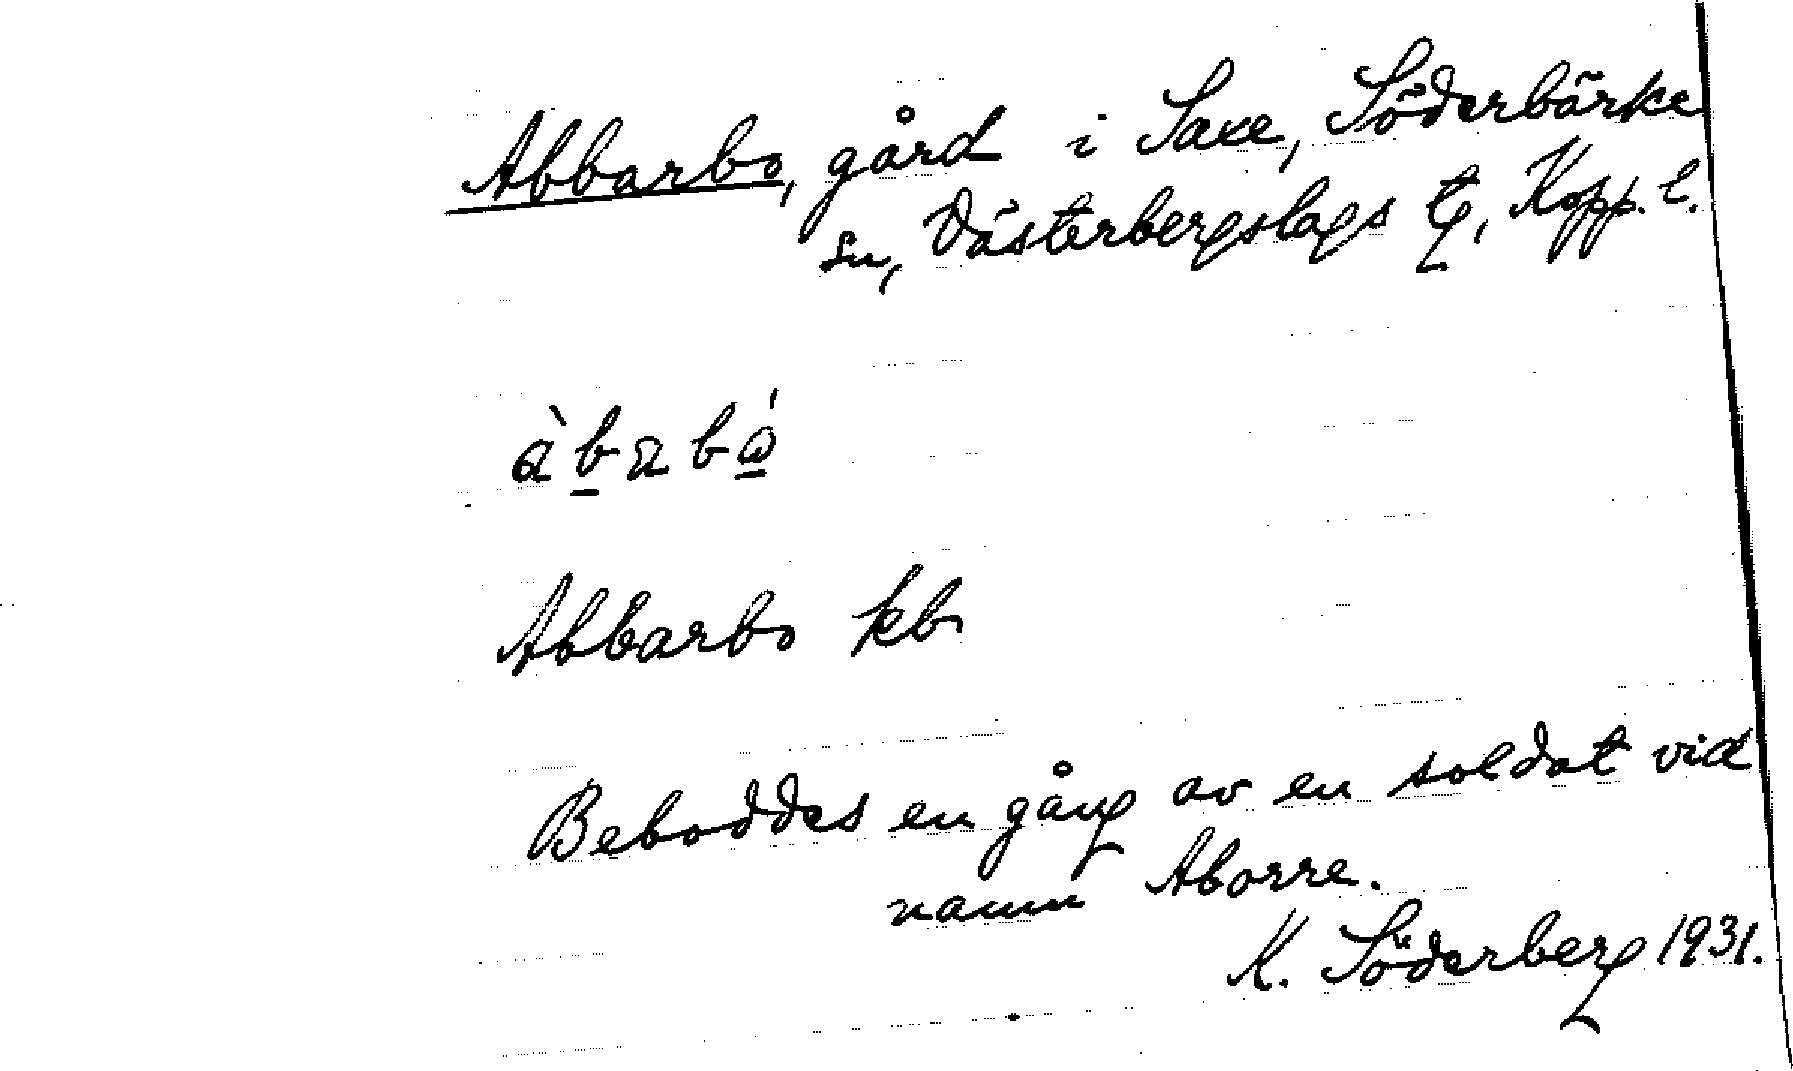 Abbarbo, gård i Saxe, Söderbärke
sn, Västerbergslags tg, Kopp. l.
àbabǻ
Abbarbo kb
Beboddes en gång av en soldat vid
namn Aborre.
K. Söderberg 1931.